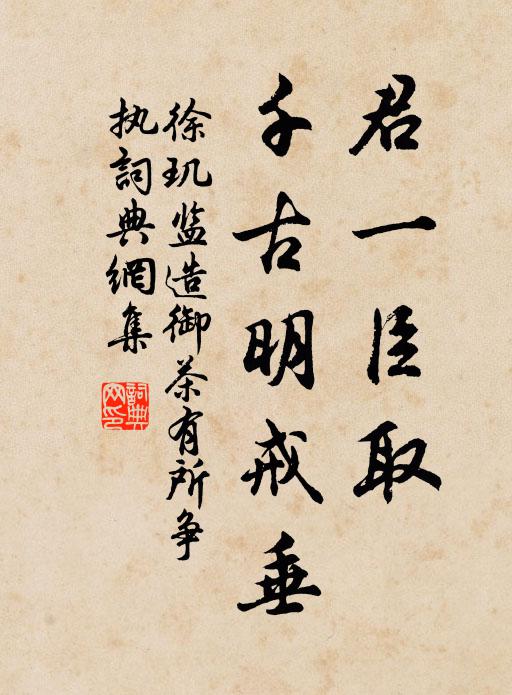 君一臣取
千古明戒垂
徐玑监造御茶有所争
执詞典網集
詞典网印